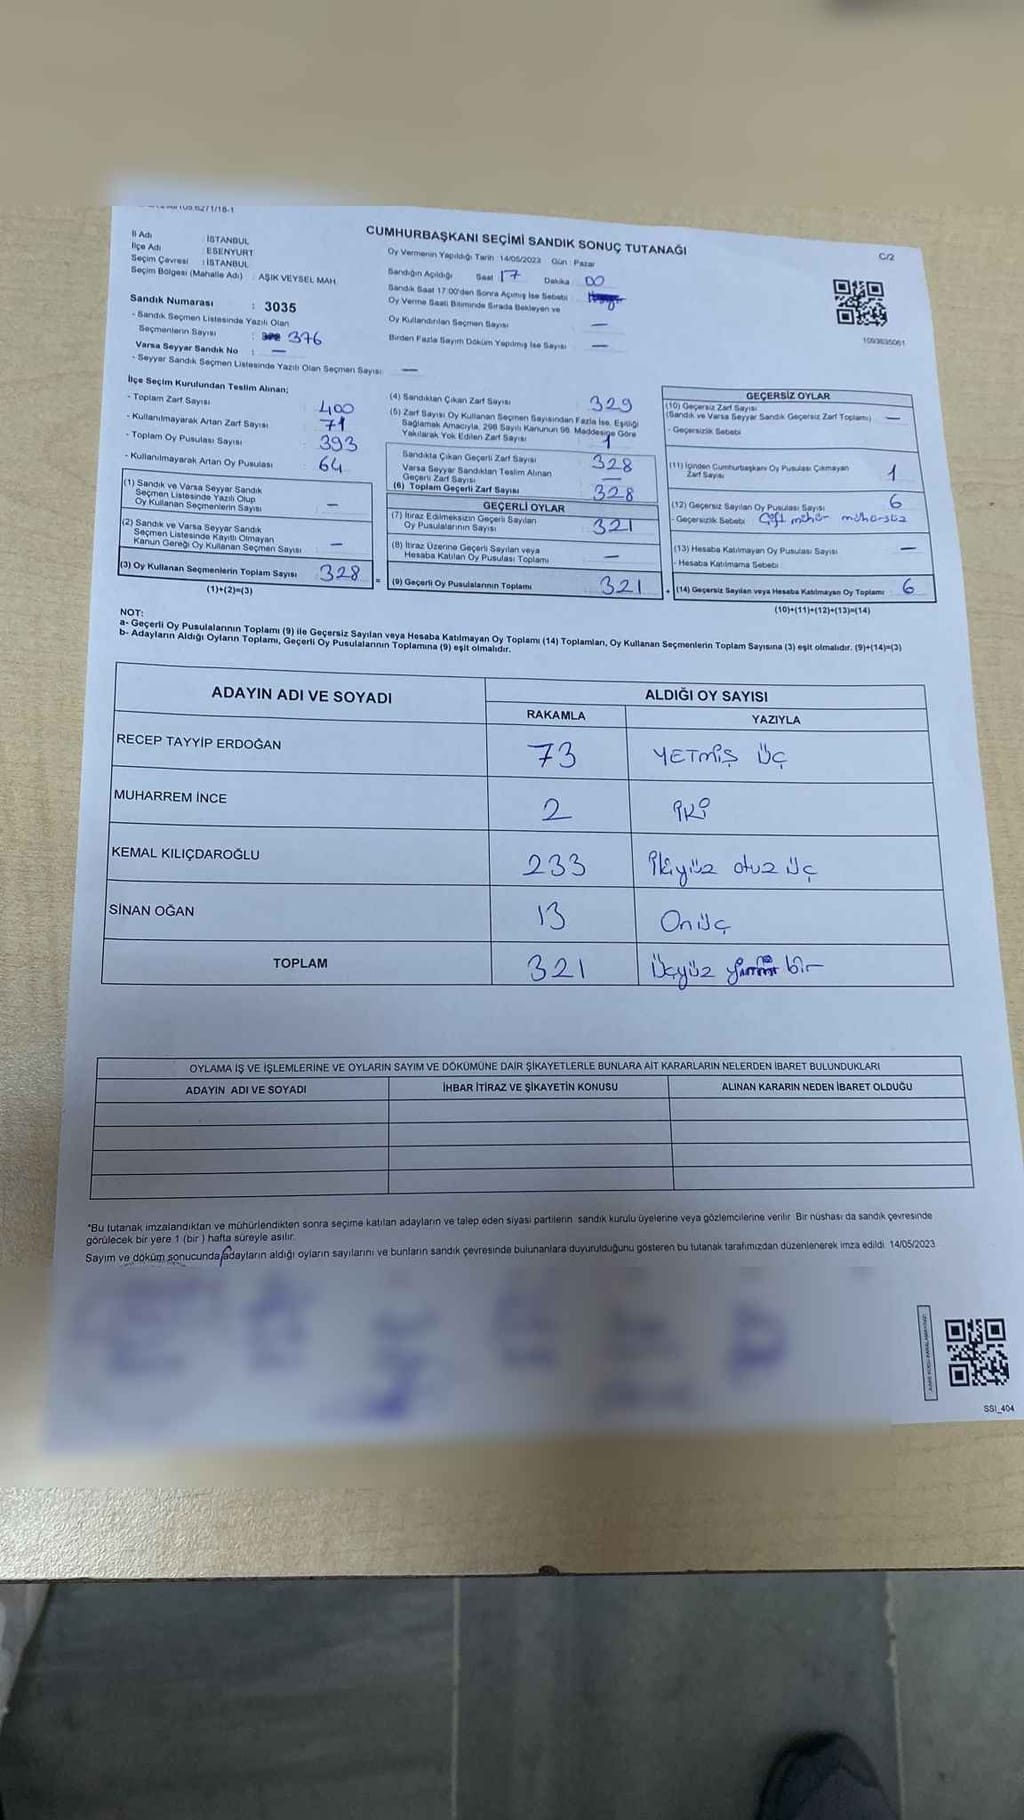 CUMHURBAŞKANI SEÇİMİ SANDIK SONUÇ TUTANAĞI
C/2
İl Adı : İSTANBUL
İlçe Adı : ESENYURT
Seçim Çevresi : İSTANBUL
Seçim Bölgesi (Mahalle Adı) : AŞIK VEYSEL MAH.
Oy Vermenin Yapıldığı Tarih 14/05/2023 Gün : Pazar
Sandığın Açıldığı Saat 17 Dakika 00
Sandık Saat 17:00'den Sonra Açılmış İse Sebebi :
Oy Verme Saati Bitiminde Sırada Bekleyen ve
Oy Kullandırılan Seçmen Sayısı —
Birden Fazla Sayım Döküm Yapılmış İse Sayısı —
1093635061
Sandık Numarası : 3035
- Sandık Seçmen Listesinde Yazılı Olan
Seçmenlerin Sayısı : 376
Varsa Seyyar Sandık No : —
- Seyyar Sandık Seçmen Listesinde Yazılı Olan Seçmen Sayısı: —
İlçe Seçim Kurulundan Teslim Alınan;
- Toplam Zarf Sayısı 400
- Kullanılmayarak Artan Zarf Sayısı 71
- Toplam Oy Pusulası Sayısı 393
- Kullanılmayarak Artan Oy Pusulası 64
(1) Sandık ve Varsa Seyyar Sandık
Seçmen Listesinde Yazılı Olup
Oy Kullanan Seçmenlerin Sayısı —
(2) Sandık ve Varsa Seyyar Sandık
Seçmen Listesinde Kayıtlı Olmayan
Kanun Gereği Oy Kullanan Seçmen Sayısı —
(3) Oy Kullanan Seçmenlerin Toplam Sayısı 328
(1)+(2)=(3)
(4) Sandıktan Çıkan Zarf Sayısı 329
(5) Zarf Sayısı Oy Kullanan Seçmen Sayısından Fazla İse, Eşitliği
Sağlamak Amacıyla, 298 Sayılı Kanunun 98. Maddesine Göre
Yakılarak Yok Edilen Zarf Sayısı 1
Sandıkta Çıkan Geçerli Zarf Sayısı 328
Varsa Seyyar Sandıktan Teslim Alınan
Geçerli Zarf Sayısı —
(6) Toplam Geçerli Zarf Sayısı 328
GEÇERLİ OYLAR
(7) İtiraz Edilmeksizin Geçerli Sayılan
Oy Pusulalarının Sayısı 321
(8) İtiraz Üzerine Geçerli Sayılan veya
Hesaba Katılan Oy Pusulası Toplamı —
= (9) Geçerli Oy Pusulalarının Toplamı 321
GEÇERSİZ OYLAR
(10) Geçersiz Zarf Sayısı
(Sandık ve Varsa Seyyar Sandık Geçersiz Zarf Toplamı) —
- Geçersizlik Sebebi
(11) İçinden Cumhurbaşkanı Oy Pusulası Çıkmayan
Zarf Sayısı 1
(12) Geçersiz Sayılan Oy Pusulası Sayısı 6
- Geçersizlik Sebebi Çift mühür mühürsüz
(13) Hesaba Katılmayan Oy Pusulası Sayısı —
- Hesaba Katılmama Sebebi
+ (14) Geçersiz Sayılan veya Hesaba Katılmayan Oy Toplamı 6
(10)+(11)+(12)+(13)=(14)
NOT:
a- Geçerli Oy Pusulalarının Toplamı (9) ile Geçersiz Sayılan veya Hesaba Katılmayan Oy Toplamı (14) Toplamları, Oy Kullanan Seçmenlerin Toplam Sayısına (3) eşit olmalıdır. (9)+(14)=(3)
b- Adayların Aldığı Oyların Toplamı, Geçerli Oy Pusulalarının Toplamına (9) eşit olmalıdır.
ADAYIN ADI VE SOYADI ALDIĞI OY SAYISI
RAKAMLA YAZIYLA
RECEP TAYYİP ERDOĞAN 73 YETMİŞ ÜÇ
MUHARREM İNCE 2 iki
KEMAL KILIÇDAROĞLU 233 İkiyüz otuz üç
SİNAN OĞAN 13 Onüç
TOPLAM 321 Üçyüz yirmi bir
OYLAMA İŞ VE İŞLEMLERİNE VE OYLARIN SAYIM VE DÖKÜMÜNE DAİR ŞİKAYETLERLE BUNLARA AİT KARARLARIN NELERDEN İBARET BULUNDUKLARI
ADAYIN ADI VE SOYADI İHBAR İTİRAZ VE ŞİKAYETİN KONUSU ALINAN KARARIN NEDEN İBARET OLDUĞU
*Bu tutanak imzalandıktan ve mühürlendikten sonra seçime katılan adayların ve talep eden siyasi partilerin sandık kurulu üyelerine veya gözlemcilerine verilir. Bir nüshası da sandık çevresinde
görülecek bir yere 1 (bir ) hafta süreyle asılır.
Sayım ve döküm sonucunda adayların aldığı oyların sayılarını ve bunların sandık çevresinde bulunanlara duyurulduğunu gösteren bu tutanak tarafımızdan düzenlenerek imza edildi. 14/05/2023
SSI_404